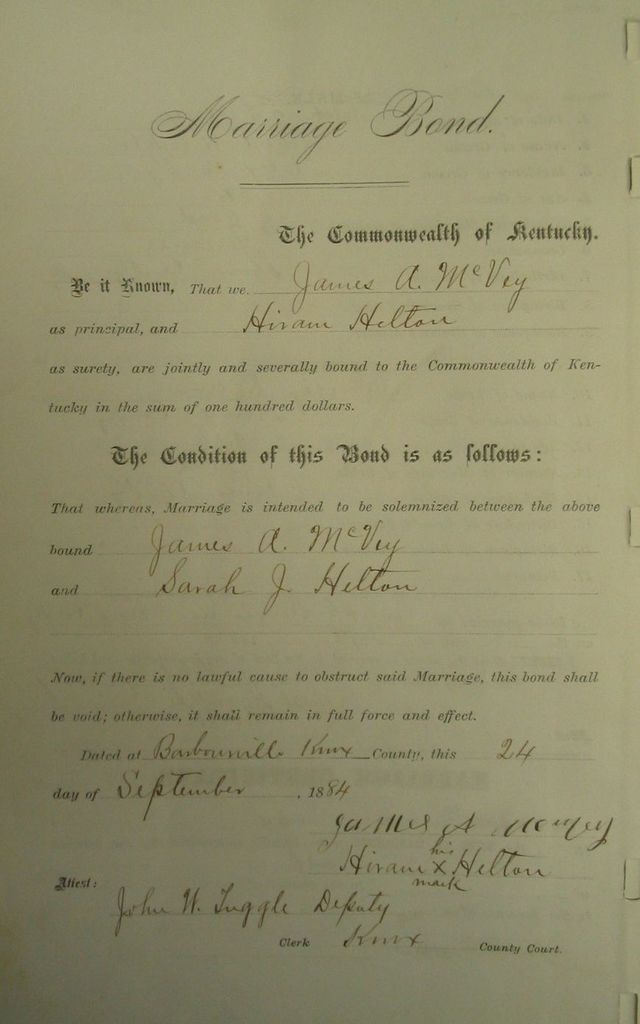 Marriage Bond.
The Commonwealth of Kentucky.
Be it Known, That we James A. McVey
as principal, and Hiram Helton
as surety, are jointly and severally bound to the Commonwealth of Ken-
tucky in the sum of one hundred dollars.
The Condition of this Bond is as follows:
That whereas, Marriage is intended to be solemnized between the above
bound James A. McVey
and Sarah J. Helton
Now, if there is no lawful cause to obstruct said Marriage, this bond shall
be void; otherwise, it shall remain in full force and effect.
Dated at Barbourville Knox County, this 24
day of September, 1884
James A McVey
his
Hiram X Helton
mark
Attest:
John W. Tuggle Deputy
Clerk Knox County Court.